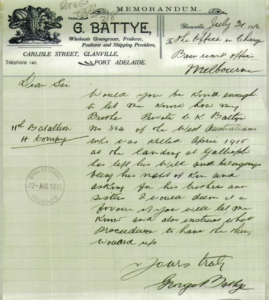 MEMORANDUM.
G. BATTYE,
Wholesale Greengrocer, Fruiterer,
Produce and Shipping Providore,
CARLISLE STREET, GLANVILLE,
PORT ADELAIDE.
Telephone 140.
Glanville July 31 1916
The Officer in Charge
Base record office
Melbourne
Dear Sir
Would you be kind enough
to let me know how my
Brother Private
No of the West Australians
11th Batallion
H Company
who was killed April 1915
at the landing at Gallipoli
has left his Will and belongings
being his next of Kin and
asking for his brothers and
sister I would deem it a
favour if you will let me
know and also instruct what
Procedure to have the thing
Wound up
Yours truly
George Battye